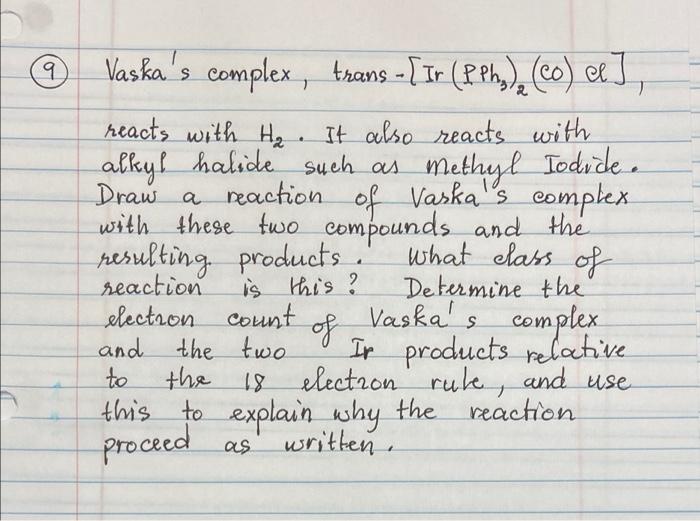 9 Vaska's complex, trans-[Ir(PPh₃)₂(CO)Cl],
reacts with H₂. It also reacts with
alkyl halide such as Methyl Iodide.
Draw a reaction of Vaska's complex
with these two compounds and the
resulting products. What class of
reaction is this? Determine the
electron count of Vaska's complex
and the two Ir products relative
to the 18 electron rule, and use
this to explain why the reaction
proceed as written.